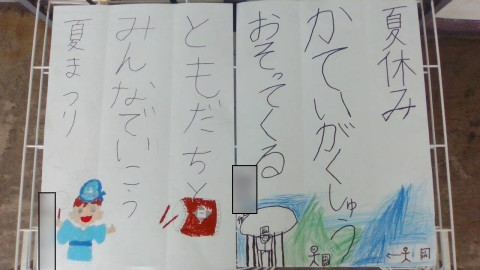 夏休み
かていがくしゅう
おそってくる
ともだちと
みんなでいこう
夏まつり